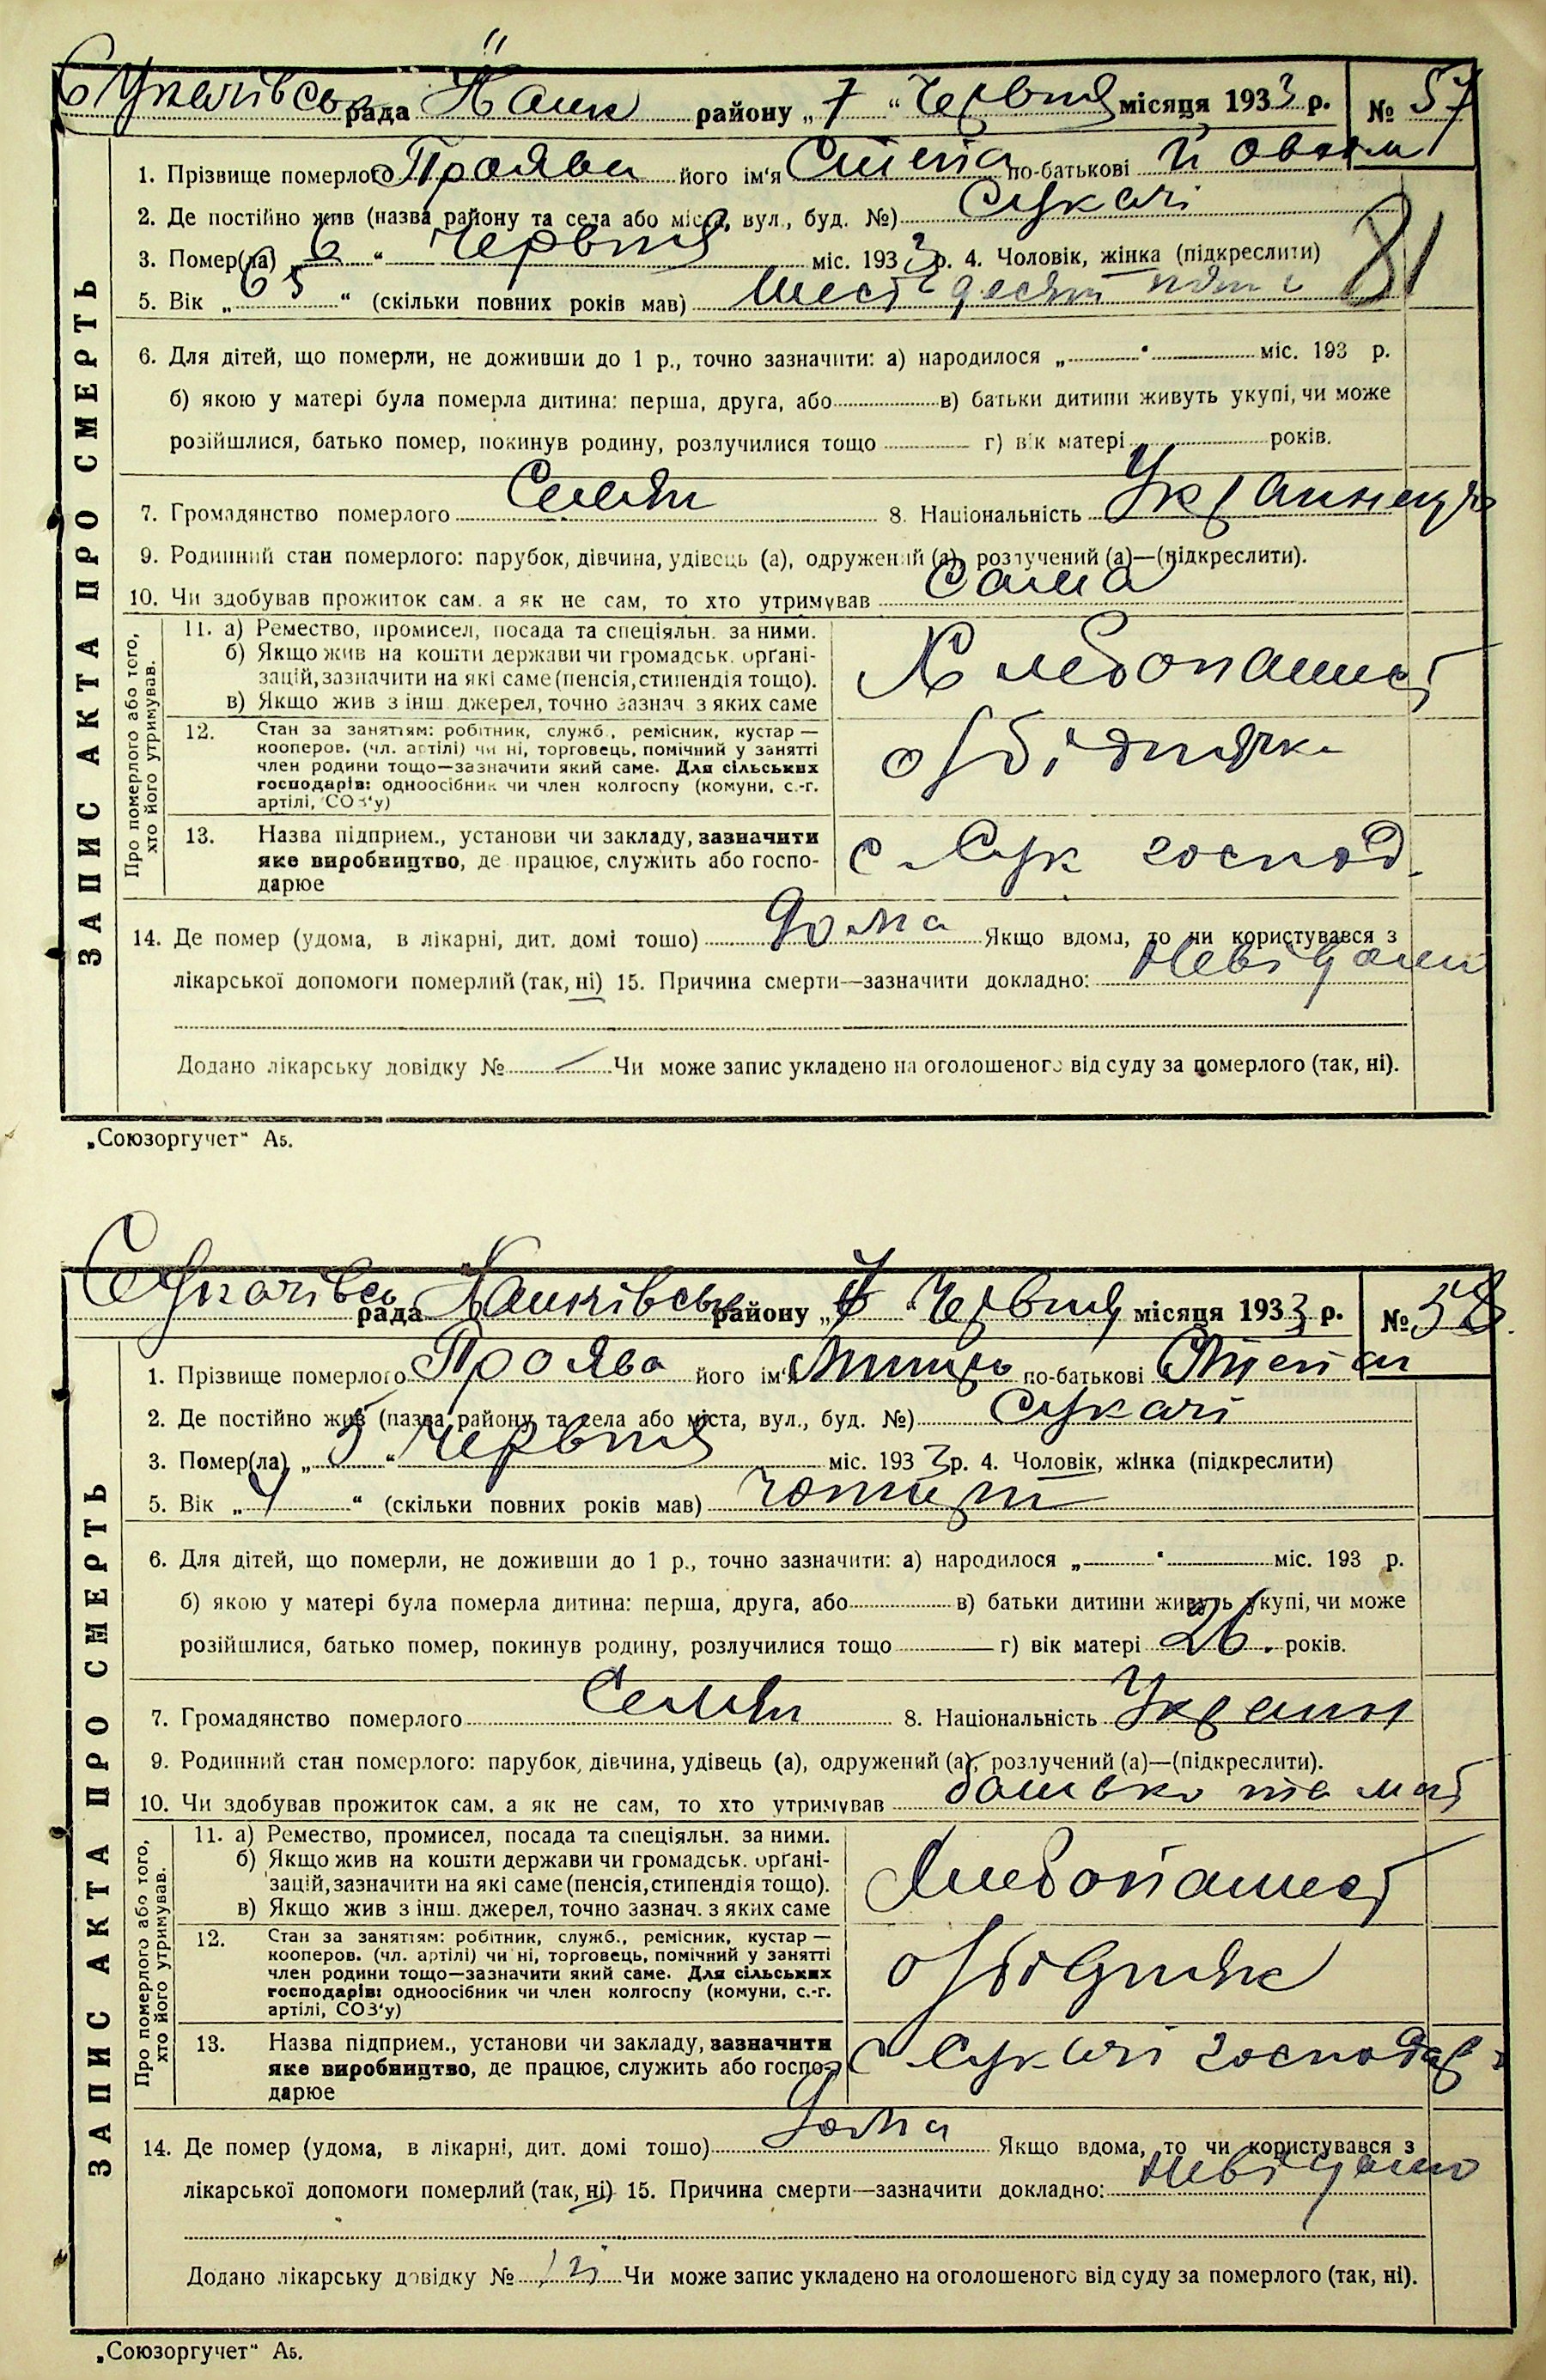 Сукачівська рада Ханк району „7“ Червня місяця 1933 р. № 57
1. Прізвище померлого Проява його ім'я Степа по-батькові Йовхим
2. Де постійно жив (назва району та села або міста, вул., буд. №) Сукачі
3. Помер(ла) „6“ Червня міс. 1933 р. 4. Чоловік, жінка (підкреслити)
81
5. Вік „65“ (скільки повних років мав) Шестьдесят пять
6. Для дітей, що померли, не доживши до 1 р., точно зазначити: а) народилося „ “ міс. 193 р.
б) якою у матері була померла дитина: перша, друга, або в) батьки дитини живуть укупі, чи може
розійшлися, батько помер, покинув родину, розлучилися тощо г) вік матері років.
7. Громадянство померлого Селян 8. Національність Українець
9. Родинний стан померлого: парубок, дівчина, удівець (а), одружений (а), розлучений (а)—(підкреслити).
10. Чи здобував прожиток сам, а як не сам, то хто утримував Сама
ЗАПИС АКТА ПРО СМЕРТЬ
Про померлого або того, хто його утримував.
11. а) Ремество, промисел, посада та спеціяльн. за ними.
б) Якщо жив на кошти держави чи громадськ. органі-
зацій, зазначити на які саме (пенсія, стипендія тощо).
в) Якщо жив з інш. джерел, точно зазнач. з яких саме
Хлебопашест
12. Стан за заняттям: робітник, служб., ремісник, кустар —
кооперов. (чл. артілі) чи ні, торговець, помічний у занятті
член родини тощо—зазначити який саме. Для сільських
господарів: одноосібник чи член колгоспу (комуни, с.-г.
артілі, СОЗ'у)
13. Назва підприєм., установи чи закладу, зазначити
яке виробництво, де працює, служить або госпо-
дарює
с Сук господ.
14. Де помер (удома, в лікарні, дит. домі тощо) Дома Якщо вдома, то чи користувався з
лікарської допомоги померлий (так, ні) 15. Причина смерти—зазначити докладно: Невідомо
Додано лікарську довідку № — Чи може запис укладено на оголошеного від суду за померлого (так, ні).
„Союзоргучет“ А5.
Сукачівсь рада Ханківськ району „7“ Червня місяця 1933 р. № 58.
1. Прізвище померлого Проява його ім'я по-батькові Степан
2. Де постійно жив (назва району та села або міста, вул., буд. №) Сукачі
3. Помер(ла) „5“ Червня міс. 1933 р. 4. Чоловік, жінка (підкреслити)
5. Вік „4“ (скільки повних років мав) Чотирі
6. Для дітей, що померли, не доживши до 1 р., точно зазначити: а) народилося „ “ міс. 193 р.
б) якою у матері була померла дитина: перша, друга, або в) батьки дитини живуть укупі, чи може
розійшлися, батько помер, покинув родину, розлучилися тощо г) вік матері 26. років.
7. Громадянство померлого Селян 8. Національність Украин
9. Родинний стан померлого: парубок, дівчина, удівець (а), одружений (а), розлучений (а)—(підкреслити).
10. Чи здобував прожиток сам, а як не сам, то хто утримував батько та мат
ЗАПИС АКТА ПРО СМЕРТЬ
Про померлого або того, хто його утримував.
11. а) Ремество, промисел, посада та спеціяльн. за ними.
б) Якщо жив на кошти держави чи громадськ. органі-
зацій, зазначити на які саме (пенсія, стипендія тощо).
в) Якщо жив з інш. джерел, точно зазнач. з яких саме
Хлебопашест
12. Стан за заняттям: робітник, служб., ремісник, кустар —
кооперов. (чл. артілі) чи ні, торговець, помічний у занятті
член родини тощо—зазначити який саме. Для сільських
господарів: одноосібник чи член колгоспу (комуни, с.-г.
артілі, СОЗ'у)
13. Назва підприєм., установи чи закладу, зазначити
яке виробництво, де працює, служить або госпо-
дарює
с Сукачі господар
14. Де помер (удома, в лікарні, дит. домі тощо) Дома Якщо вдома, то чи користувався з
лікарської допомоги померлий (так, ні) 15. Причина смерти—зазначити докладно: Невідомо
Додано лікарську довідку № Чи може запис укладено на оголошеного від суду за померлого (так, ні).
„Союзоргучет“ А5.